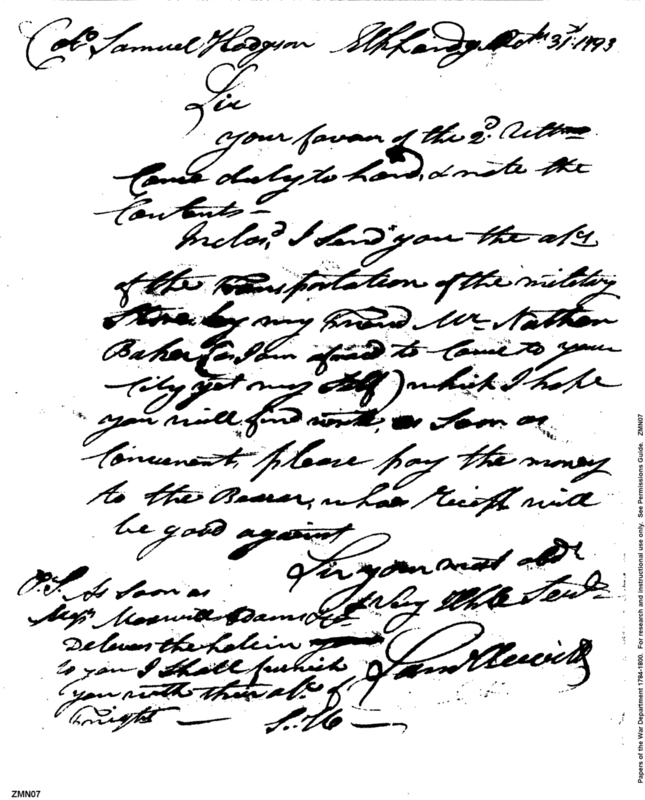 Colo. Samuel Hodgson Elklanding Octr 31st 1793
Sir
your favour of the 2d. Ultmo
Came duly to hand, & note the
Contents—
Inclosd. I Send you the acts
of the Transportation of the military
Stores by my Friend Mr. Nathan
Baker (as I am afraid to Come to your
City yet my Self) which I hope
you will find as Soon as
Convenent, please pay the money
to the Bearer, whoes will
be good against
Sir your most obdt
& Very Hble Servt.
Saml Hewitt
P.S. As Soon as
Adams
Delever the hole in
to you I Shall furnish
you with their act. of
Freight — S. H —
Papers of the War Department 1784-1800. For research and instructional use only. See Permissions Guide. ZMN07
ZMN07